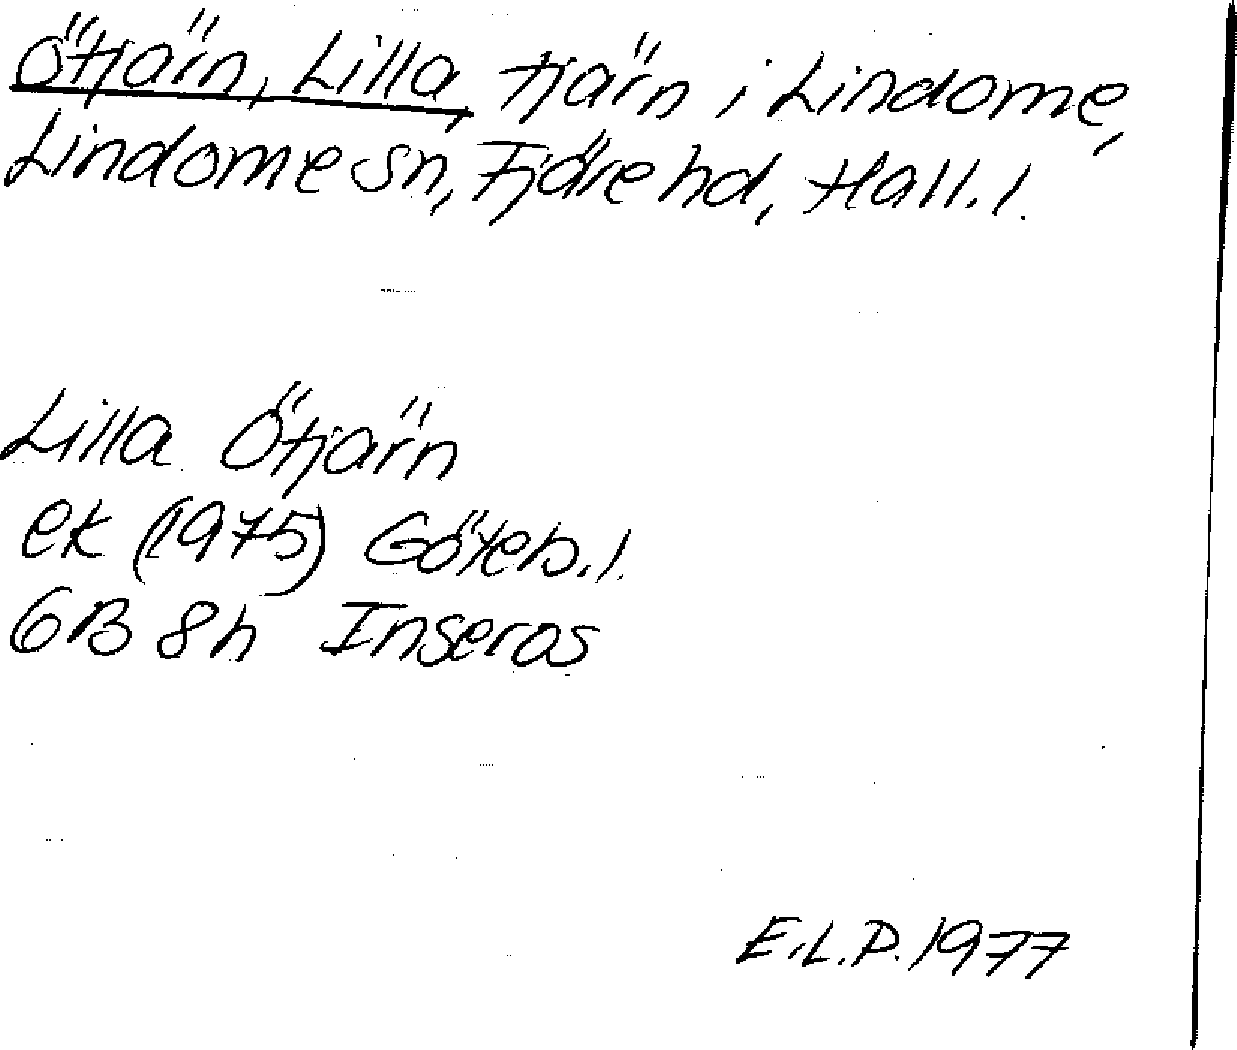 Ötjärn, Lilla, tjärn i Lindome,
Lindome sn, Fjäre hd, Hall. l.
Lilla Ötjärn
ek (1975) Göteb. l.
6B 8h Inseros
E.L.P. 1977